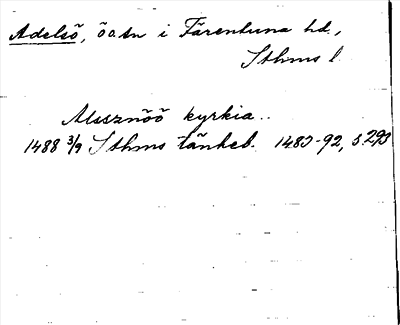 Adelsö, ö o. sn i Färentuna hd.,
Sthms l.
Alssznöö kyrkia..
1488 3/9 Sthms tänkeb. 1483-92, s. 293